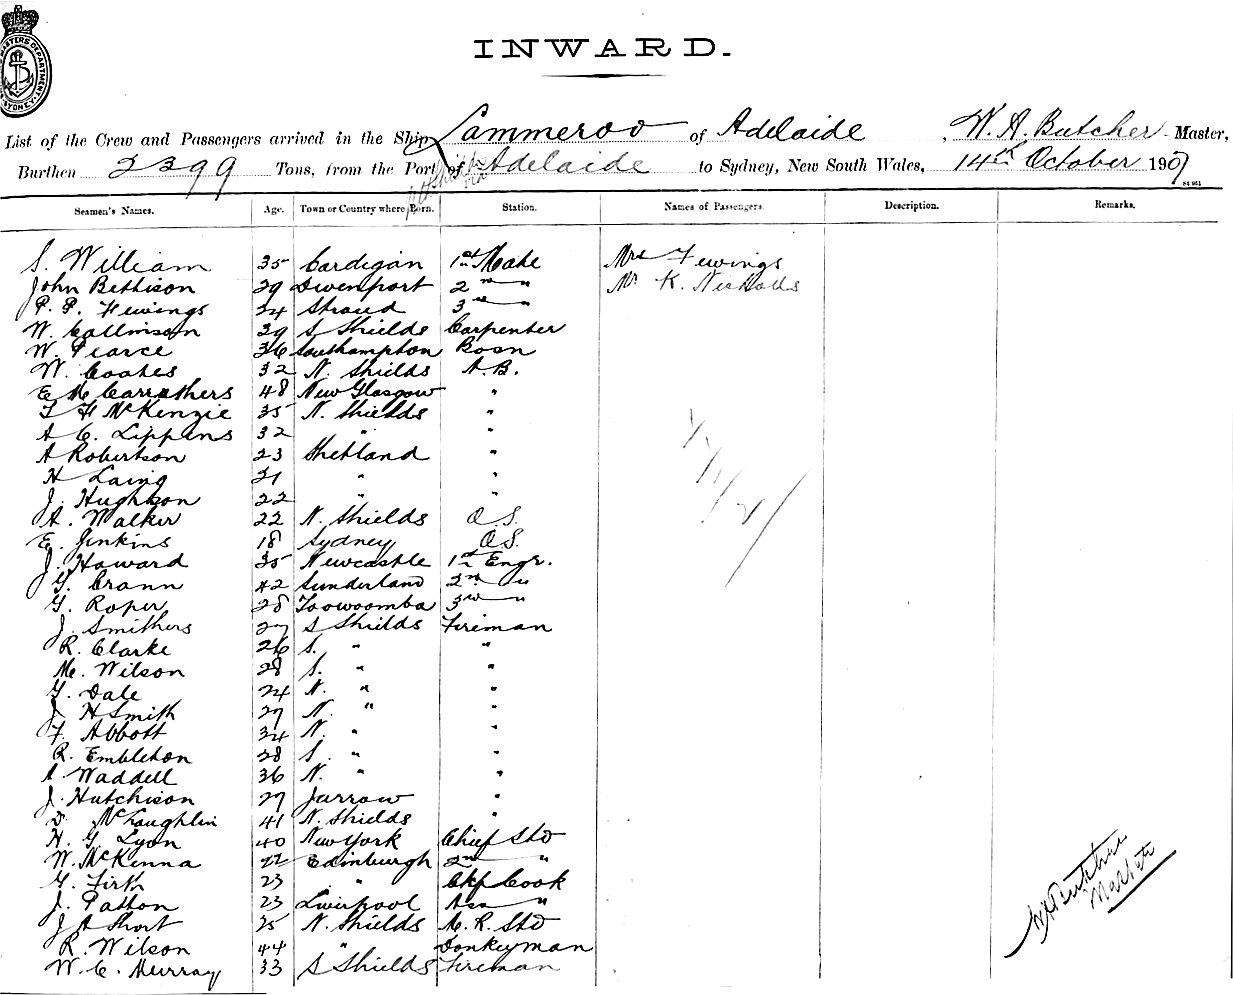 INWARD.
List of the Crew and Passengers arrived in the Ship Lammeroo of Adelaide, W. A. Butcher Master,
Burthen 2399 Tons, from the Port of Adelaide to Sydney, New South Wales, 14th October 1907
Seamen's Names. Age. Town or Country where Born. Station. Names of Passengers. Description. Remarks.
S. William 35 Cardigan 1st Mate Mrs Fewings
John Bethison 29 Devenport 2nd " Mr K. Nicholls
P. P. Fewings 24 Stroud 3rd "
W. Collinson 39 S Shields Carpenter
W. Pearce 36 Southampton Bosn
W. Coates 32 N. Shields A.B.
E Mc Carruthers 48 New Glasgow "
T H McKenzie 35 N. Shields "
A C. Lippens 32 " "
A Robertson 23 Shetland "
H Laing 21 " "
J. Hughson 22 " "
A. Walker 22 N. Shields O.S.
E. Jenkins 18 Sydney O.S.
J. Howard 35 Newcastle 1st Engr.
G. Crann 42 Sunderland 2nd "
G. Roper 28 Toowoomba 3rd "
J. Smithers 27 S Shields Fireman
R. Clarke 26 S. " "
M. Wilson 28 S. " "
G. Dale 24 N. " "
J. H Smith 27 N. " "
F. Abbott 34 N. " "
R. Embleton 28 S. " "
A. Waddell 36 N. " "
J. Hutchison 27 Jarrow "
D. McLaughlin 41 N. Shields "
H. G. Lyon 40 New York Chief Std
W. McKenna 22 Edinburgh 2nd "
G. Firth 23 " Ch Cook
J. Patton 23 Liverpool Ass "
J A Short 25 N. Shields M. R. Std
R. Wilson 44 " Donkeyman
W. C. Murray 33 S Shields Fireman
W A Butcher
Master